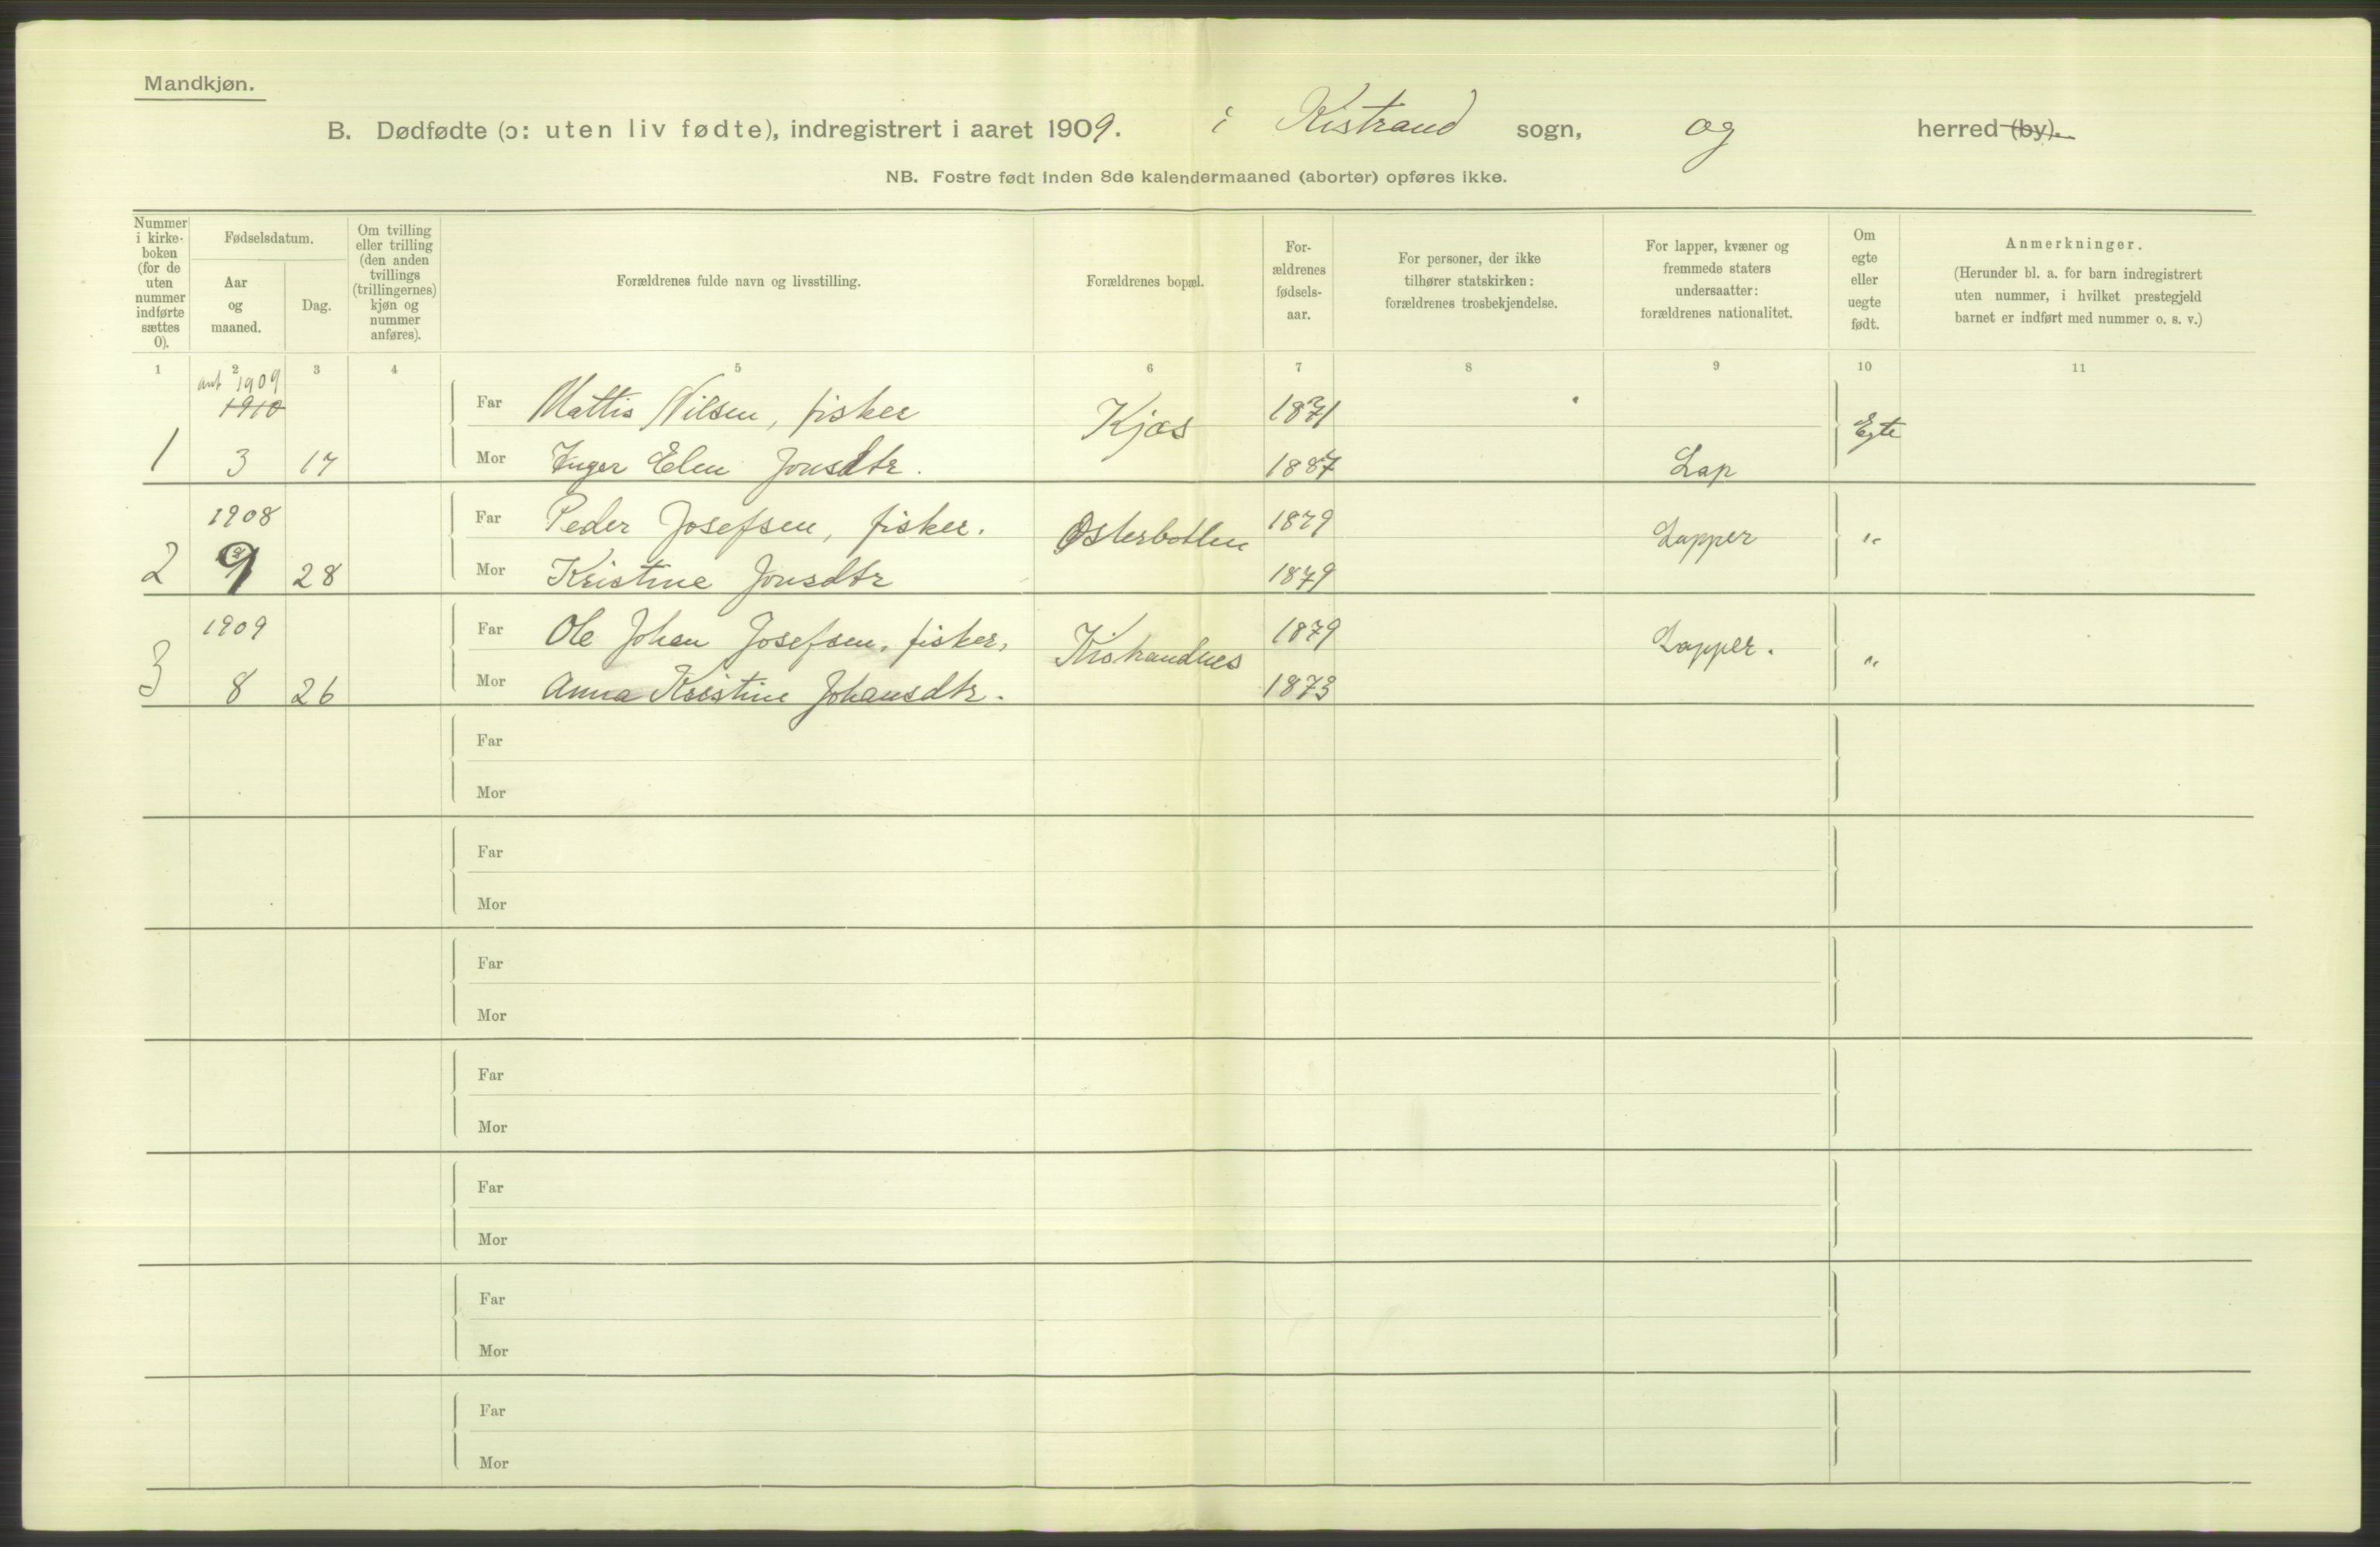 Mandkjøn.
B. Dødfødte (ɔ: uten liv fødte), indregistrert i aaret 1909. i Kistrand sogn, og herred (by).
NB. Fostre født inden 8de kalendermaaned (aborter) opføres ikke.
Nummer i kirke-boken (for de uten nummer indførte sættes 0).
Fødselsdatum.
Aar og maaned.
Dag.
Om tvilling eller trilling (den anden tvillings (trillingernes) kjøn og nummer anføres).
Forældrenes fulde navn og livsstilling.
Forældrenes bopæl.
For-ældrenes fødsels-aar.
For personer, der ikke tilhører statskirken: forældrenes trosbekjendelse.
For lapper, kvæner og fremmede staters undersaatter: forældrenes nationalitet.
Om egte eller uegte født.
Anmerkninger.
(Herunder bl. a. for barn indregistrert uten nummer, i hvilket prestegjeld barnet er indført med nummer o. s. v.)
1 2 3 4 5 6 7 8 9 10 11
1909
1910 Far Mattis Nilsen, fisker Kjæs 1871 Egte
1 3 17 Mor Inger Elen Jonsdtr. 1887 Lap
1908 Far Peder Josefsen, fisker. Østerbotten 1879 Lapper "
2 9 28 Mor Kristine Jonsdtr 1879
1909 Far Ole Johan Josefsen, fisker, Kistrandnes 1879 Lapper. "
3 8 26 Mor Anna Kristine Johansdtr. 1873
Far
Mor
Far
Mor
Far
Mor
Far
Mor
Far
Mor
Far
Mor
Far
Mor